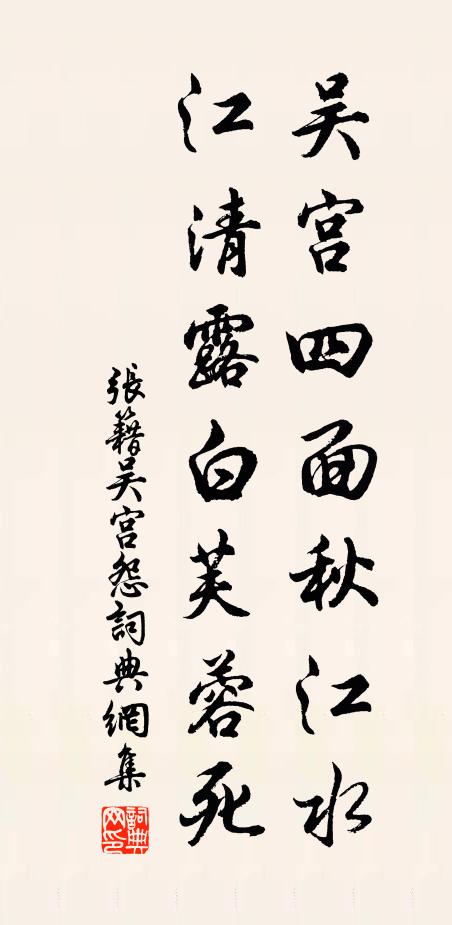 吴宫四面秋江水
江清露白芙蓉死
張籍吴宫怨詞典網集
詞典
网印